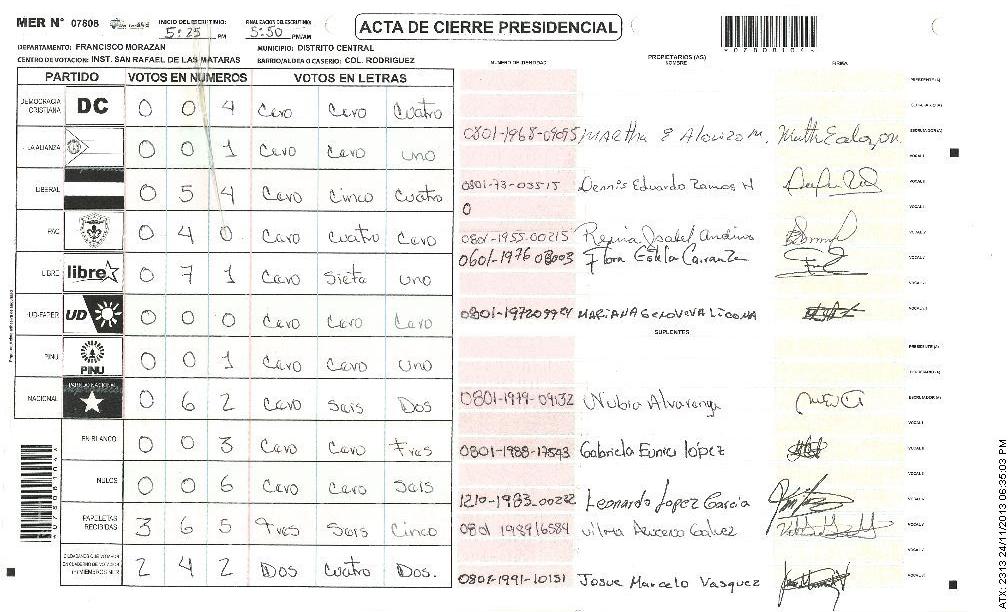 MER N° 07808 INICIO DEL ESCRUTINIO: 5:25 PM FINALIZACION DEL ESCRUTINIO: 5:50 PM/AM
ACTA DE CIERRE PRESIDENCIAL
DEPARTAMENTO: FRANCISCO MORAZAN MUNICIPIO: DISTRITO CENTRAL
CENTRO DE VOTACION: INST. SAN RAFAEL DE LAS MATARAS BARRIO/ALDEA O CASERIO: COL. RODRIGUEZ
NUMERO DE IDENTIDAD PROPIETARIOS (AS) NOMBRE FIRMA
PARTIDO VOTOS EN NUMEROS VOTOS EN LETRAS
DEMOCRACIA CRISTIANA DC 0 0 4 Cero Cero Cuatro
LA ALIANZA 0 0 1 Cero Cero uno
0801-1968-09055 MARTHA E Alonzo M.
LIBERAL 0 5 4 Cero Cinco Cuatro
0801-73-03515 Dennis Eduardo Ramos H
0
PAC 0 4 0 Cero Cuatro Cero
0801-1955-00215 Regina Isabel Andino
0601-1976 03003 Flora Estela Carranza
LIBRE libre 0 7 1 Cero Siete uno
UD-FAPER UD 0 0 0 Cero Cero Cero
0801-197209924 MARIANA GENOVEVA LICONA
SUPLENTES
PINU PINU 0 0 1 Cero Cero Uno
NACIONAL PARTIDO NACIONAL 0 6 2 Cero Seis Dos
0801-1979-09132 Nubia Alvarenga
EN BLANCO 0 0 3 Cero Cero Tres
0801-1988-17543 Gabriela Eunice López
NULOS 0 0 6 Cero Cero Seis
1210-1983-00282 Leonardo Lopez Garcia
PAPELETAS RECIBIDAS 3 6 5 Tres Seis Cinco
0801 198916584 Vilma Azucena Galvez
CIUDADANOS QUE VOTARON EN CUADERNO DE VOTACION (+) MIEMBROS MER 2 4 2 Dos Cuatro Dos.
0801-1991-10131 Josue Marcelo Vasquez
ATX: 2313 24/11/2013 06:35:03 PM